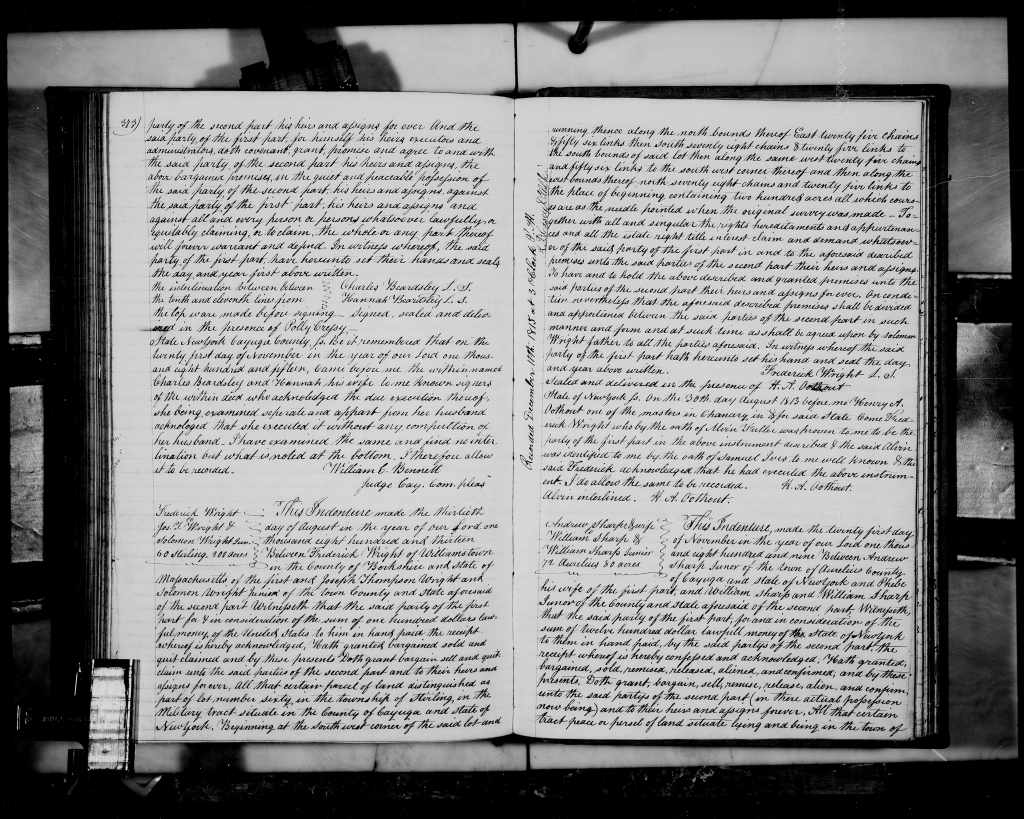 313)
party of the second part his heirs and assigns for ever And the
said party of the first part for himself his heirs executors and
administrators, doth covenant, grant, promise and agree to and with
the said party of the second part his heirs and assigns, the
above bargained premises, in the quiet and peaceable possession of
the said party of the second part, his heirs and assigns, against
the said party of the first part, his heirs and assigns and
against all and every person or persons whatsoever lawfully or
equitably claiming, or to claim, the whole or any part thereof
will forever warrant and defend. In witness whereof, the said
party of the first part, have hereunto set their hands and seals,
the day and year first above written.
the interlineation between between Charles Beardsley L. S.
the tenth and eleventh lines from Hannah Beardsley L. S.
the top ware made before signing – Signed, sealed and deliv
ered in the presence of Polly Crepsy –
State New York Cayuga County ss. Be it remembered that on the
twenty first day of November in the year of our Lord one thous.
and eight hundred and fifteen, Came before me the within named
Charles Beardsley and Hannah his wife to me known signers
of the within deed who acknowledged the due execution thereof,
she being examined seperate and appart from her husband
acknologed that she executed it without any compultion of
her husband. I have examined the same and find no inter
lination but what is noted at the bottom. I therefore allow
it to be recorded. William C. Bennett
Judge Cay. Com. pleas
Frederick Wright
Jos. T. Wright &
Solomon Wright Jun.
60 Sterling. 200 acres
This Indenture made the thirtieth
day of August in the year of our Lord one
thousand eight hundred and thirteen
Between Frederick Wright of Williamstown
in the County of Berkshire and State of
Massachusetts of the first and Joseph Thompson Wright and
Solomon Wright Junior of the town County and state aforesaid
of the second part Witnesseth that the said party of the first
part for & in consideration of the sum of one hundred dollars law-
ful money, of the United States to him in hand paid the receipt
whereof is hereby acknowledged, Hath granted, bargained sold and
quit claimed and by these presents Doth grant bargain sell and quit
claim unto the said parties of the second part and to their heirs and
assigns forever, All that certain parcel of land distinguished as
part of lot number sixty in the township of Sterling in the
Military tract situate in the County of Cayuga and State of
New York. Beginning at the south west corner of the said lot and
running thence along the north bounds thereof East twenty five chains
& fifty six links then South seventy eight chains & twenty five links to
the south bounds of said lot then along the same west twenty five chains
and fifty six links to the south west corner thereof and then along the
west bounds thereof north seventy eight chains and twenty five links to
the place of beginning containing two hundred acres all which cours-
es are as the needle pointed when the original survey was made – To-
gether with all and singular the rights hereditaments and appurtenan-
ces and all the estate right title interest claim and demand whatsoev-
er of the said party of the first part in and to the aforesaid described
premises unto the said parties of the second part their heirs and assigns
To have and to hold the above described and granted premises unto the
said parties of the second part their heirs and assigns for ever. On condi-
tion nevertheless that the aforesaid described premises shall be divided
and apportioned between the said parties of the second part in such
manner and form and at such time as shall be agreed upon by Solomon
Wright father to all the parties aforesaid. In witness whereof the said
party of the first part hath hereunto set his hand and seal the day
and year above written. Frederick Wright L. S.
Sealed and delivered in the presence of H. A. Oothout
State of New York ss. On the 30th day August 1813 before me Henry A.
Oothout one of the masters in Chancery, in & for said State Come Fred-
erick Wright who by the oath of Alvin Fuller was proven to me to be the
party of the first part in the above instrument described & the said Alvin
was identified to me by the oath of Samuel Ives to me well known & the
said Frederick acknowledged that he had executed the above instrum-
ent. I do allow the same to be recorded. H. A. Oothout.
Alvin interlined. H. A. Oothout.
Recorded December 11th 1815 at 3 o'clock P. M.
Andrew Sharp & wife
William Sharp &
William Sharp Junior
72 Aurelius 80 acres
This Indenture, made the twenty first day
of November in the year of our Lord one thous
and eight hundred and nine Between Andrew
Sharp Junor of the town of Aurelius County
of Cayuga and State of New York and Phebe
his wife of the first part, and William Sharp and William Sharp
Junor of the County and State aforesaid of the second part, Witnesseth,
that the said party of the first part, for and in consideration of the
sum of twelve hundred dollar lawfull money of the State of New York
to them in hand paid, by the said partys of the second part, the
receipt whereof is hereby confessed and acknowledged, Hath granted,
bargained, sold, remised, released, aliened, and confirmed, and by these
presents, Doth grant, bargain, sell, remise, release, alien, and confirm,
unto the said partys of the second part (in their actual possession
now being) and to their heirs and assigns forever, All that certain
tract peace or persel of land situate lying and being in the town of